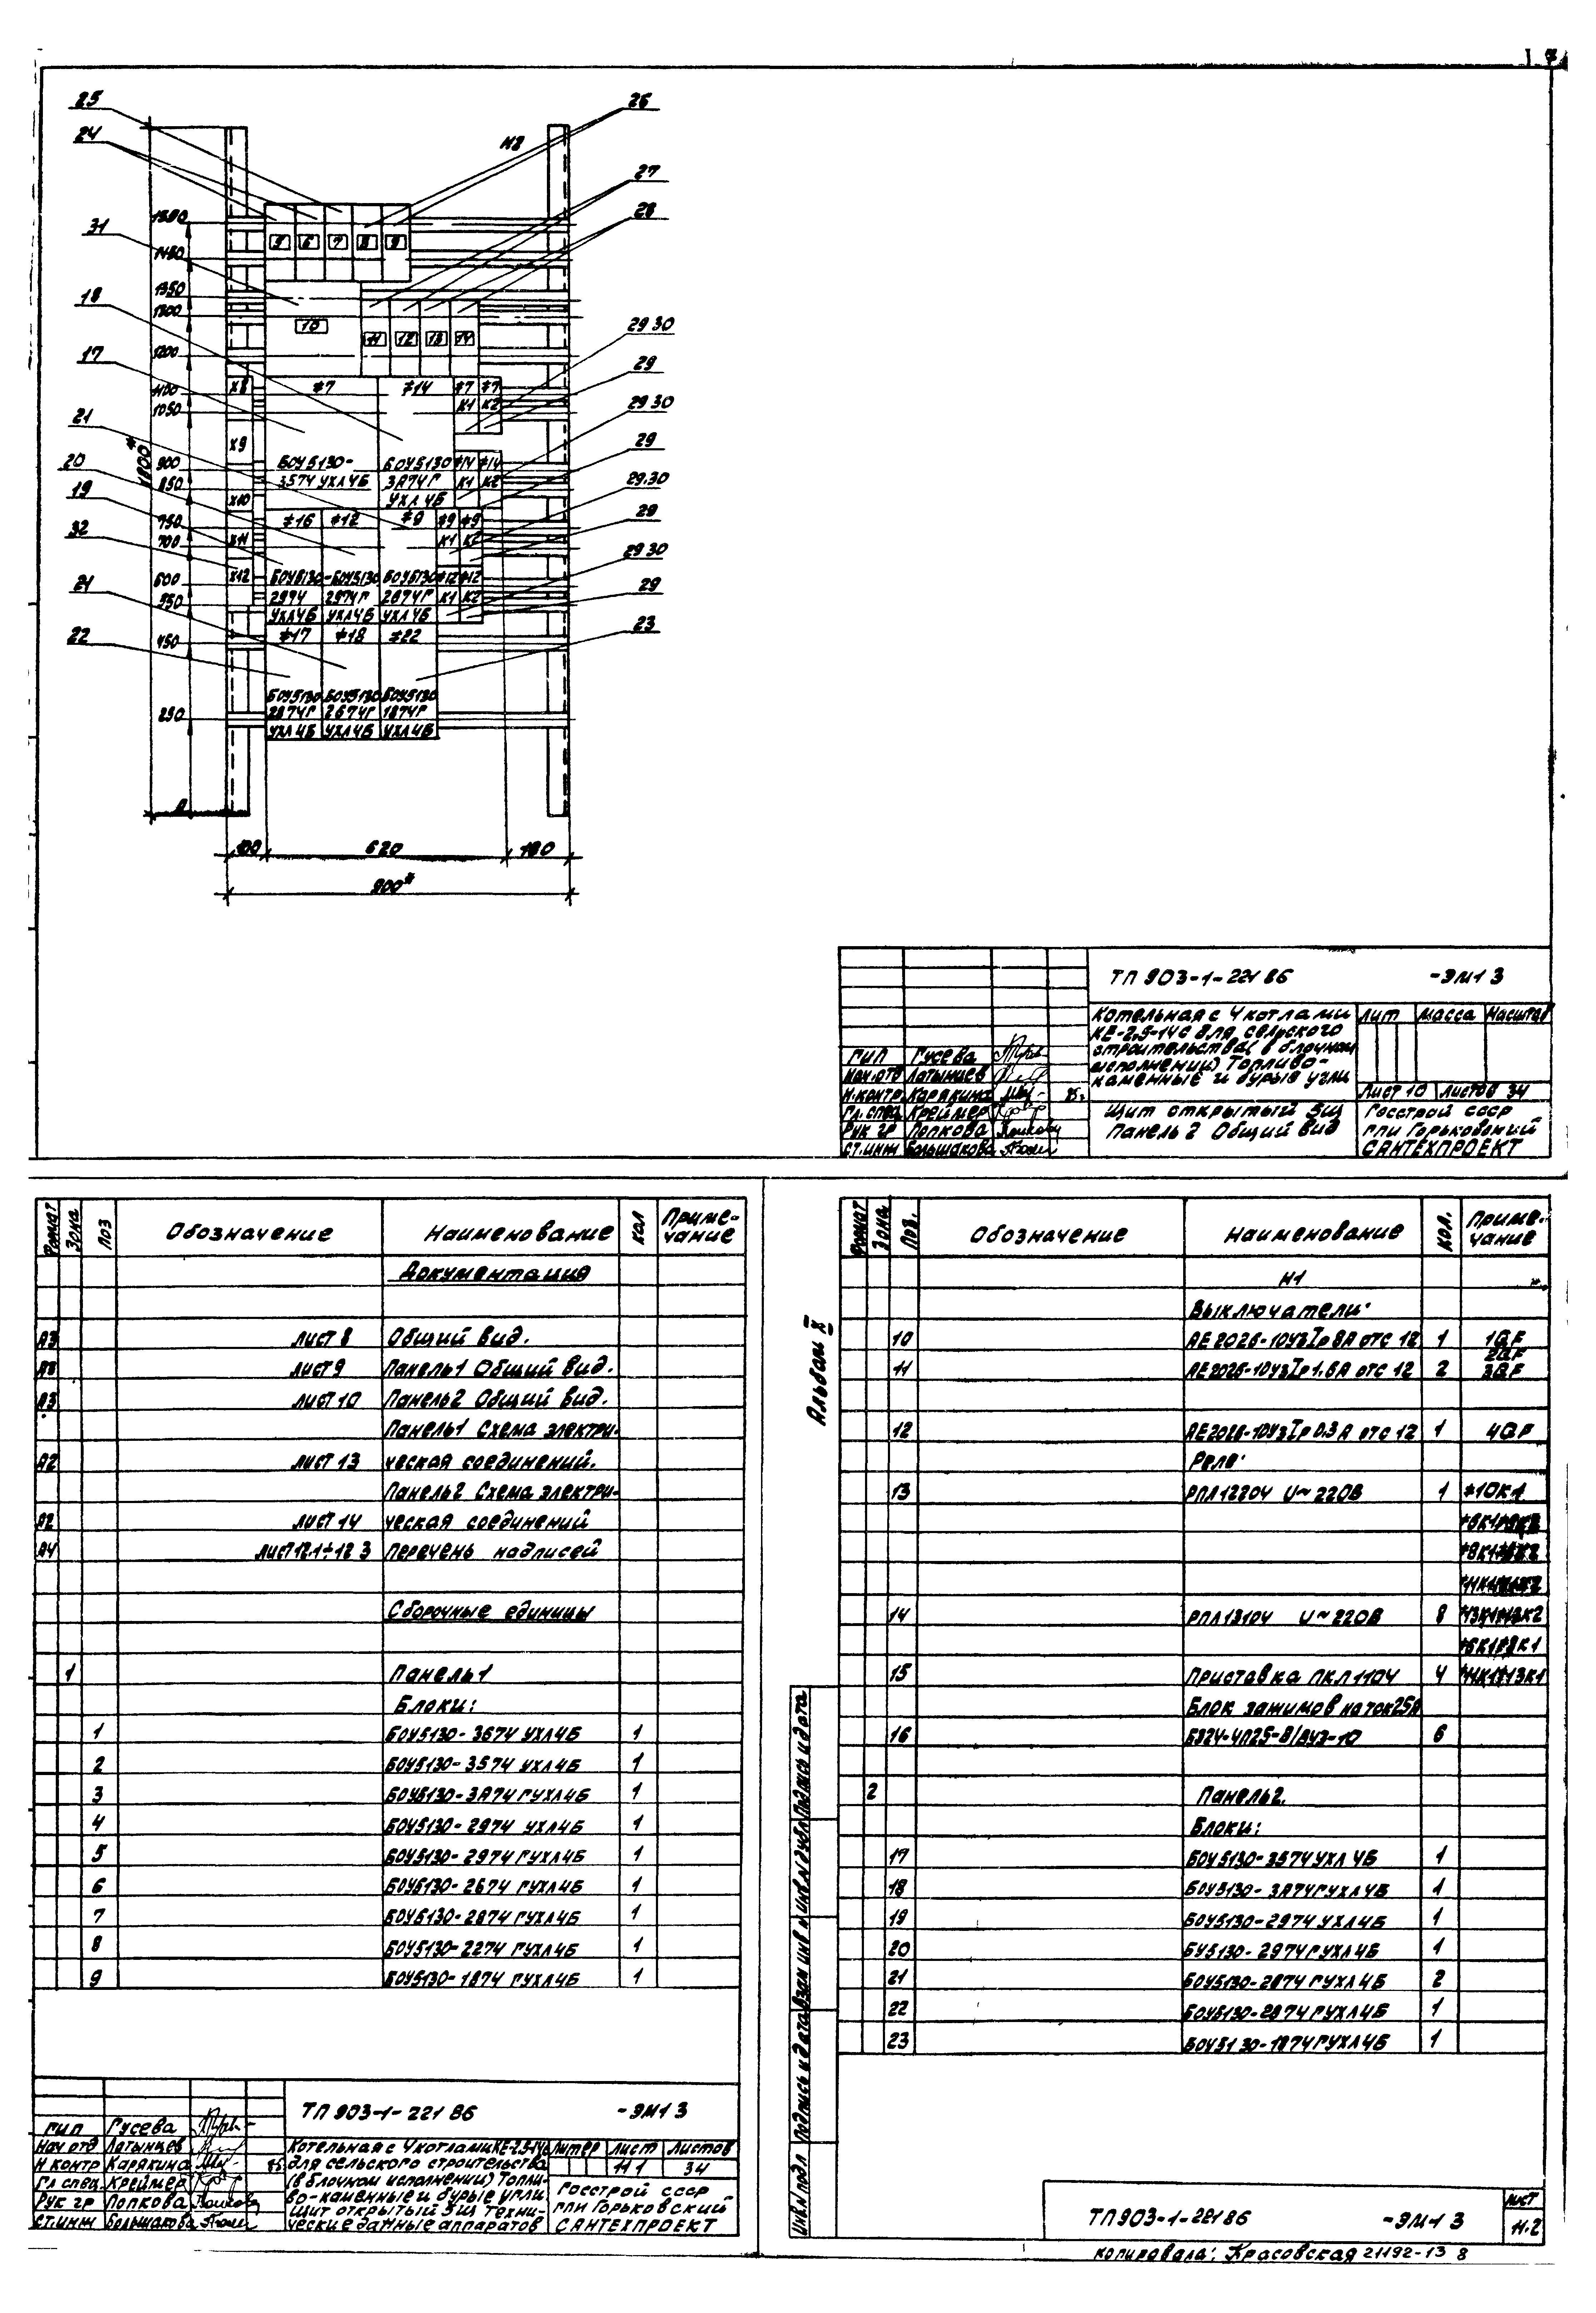 7
25
26
24
И2
27
28
31
1500
5 6 7 8 9
1450
1350
18
1300
10
11 12 13 14
29 30
17
1200
29
Х8 #7 #14 #7 #7
1100
К1 К2
1050
29.30
21
1800*
Х9
29
20
900
БОУ5130- БОУ5130 #14 #14
850
3574 УХЛ4Б 3А74Г К1 К2
29.30
19
Х10
УХЛ4Б
29
750
#16 #12 #9 #9 #9
32
700
Х11
К1 К2
29 30
600
Х12
БОУ5130-БОУ5130 БОУ5130 #12 #12
29
550
2974 2974Г 2674Г К1 К2
21
УХЛ4Б УХЛ4Б УХЛ4Б
23
22
450
#17 #18 #22
БОУ5130 БОУ5130 БОУ5130
250
2874Г 2674Г 1874Г
УХЛ4Б УХЛ4Б УХЛ4Б
0
100 620 180
900*
ТП 903-1-221 86 -ЭМ1 3
Котельная с 4 котлами
КЕ-2,5-14с для сельского
строительства( в блочном
исполнении) Топливо-
каменные и бурые угли
Лит Масса Масштаб
Лист 10 Листов 34
ГИП Гусева
Нач.отд Латынцев
Н.контр. Карякина 85г
Гл.спец Креймер
Рук гр Попкова
Ст.инж Большакова
Щит открытый 5Щ
Панель 2 Общий вид
Госстрой СССР
ГПИ Горьковский
САНТЕХПРОЕКТ
Формат Зона Поз Обозначение Наименование Кол Приме-чание
Документация
А3 Лист 8 Общий вид.
А3 Лист 9 Панель 1 Общий вид.
А3 Лист 10 Панель 2 Общий вид.
Панель 1 Схема электри-
А2 Лист 13 ческая соединений.
Панель 2 Схема электри-
А2 Лист 14 ческая соединений
А4 Лист 12.1÷12 3 Перечень надписей
Сборочные единицы
1 Панель 1
Блоки:
1 БОУ5130-3674 УХЛ4Б 1
2 БОУ5130-3574 УХЛ4Б 1
3 БОУ5130-3А74ГУХЛ4Б 1
4 БОУ5130-2974 УХЛ4Б 1
5 БОУ5130-2974ГУХЛ4Б 1
6 БОУ5130-2674ГУХЛ4Б 1
7 БОУ5130-2874ГУХЛ4Б 1
8 БОУ5130-2274ГУХЛ4Б 1
9 БОУ5130-1874ГУХЛ4Б 1
ТП 903-1-221 86 -ЭМ1 3
ГИП Гусева
Нач отд Латынцев
Н.контр Карякина 85
Гл спец. Креймер
Рук гр Попкова
Ст.инж Большакова
Котельная с 4 котлами КЕ-2,5-14с
для сельского строительства
(в блочном исполнении) Топли-
во-каменные и бурые угли
Щит открытый 5Щ Техни-
ческие данные аппаратов
Литер Лист Листов
11 1 34
Госстрой СССР
ГПИ Горьковский
САНТЕХПРОЕКТ
Альбом X
Формат Зона Поз. Обозначение Наименование Кол. Приме-чание
И1
Выключатели:
10 АЕ2026-10У3 Iр 8А отс 12 1 1QF
2QF
11 АЕ2026-10У3 Iр 1.6А отс 12 2 3QF
12 АЕ2026-10У3 Iр 0.3А отс 12 1 4QF
Реле:
13 РПЛ12204 U~220В 1 #10К1
14 РПЛ13104 U~220В 8
15 Приставка ПКЛ1104 4
Блок зажимов на ток 25А
16 БЗ24-4П25-В/ВУЗ-10 6
2 Панель 2.
Блоки:
17 БОУ5130-3574УХЛ4Б 1
18 БОУ5130-3А74ГУХЛ4Б 1
19 БОУ5130-2974 УХЛ4Б 1
20 БУ5130-2974ГУХЛ4Б 1
21 БОУ5130-2674ГУХЛ4Б 2
22 БОУ5130-2874ГУХЛ4Б 1
23 БОУ5130-1874ГУХЛ4Б 1
Инв.№ подл Подпись и дата Взам инв № Инв.№ дубл Подпись и дата
ТП 903-1-221 86 -ЭМ1 3
Лист
11.2
Копировала: Красовская 21192-13 8